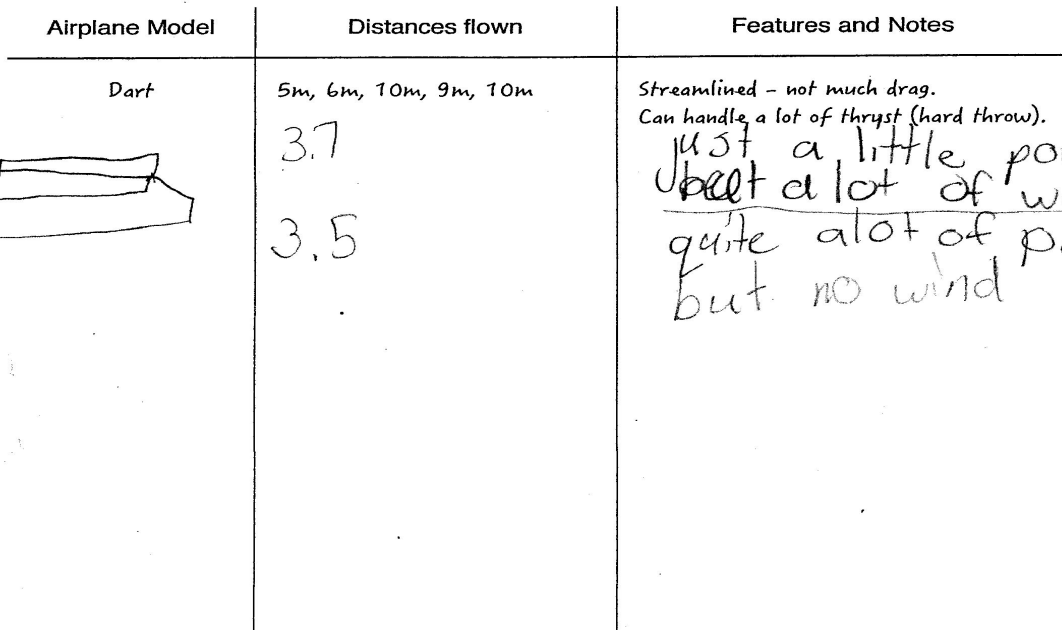 Airplane Model
Distances flown
Features and Notes
Dart
5m, 6m, 10m, 9m, 10m
Streamlined – not much drag.
Can handle a lot of thryst (hard throw).
3.7
just a little
but a lot of
3.5
quite alot of
but no wind